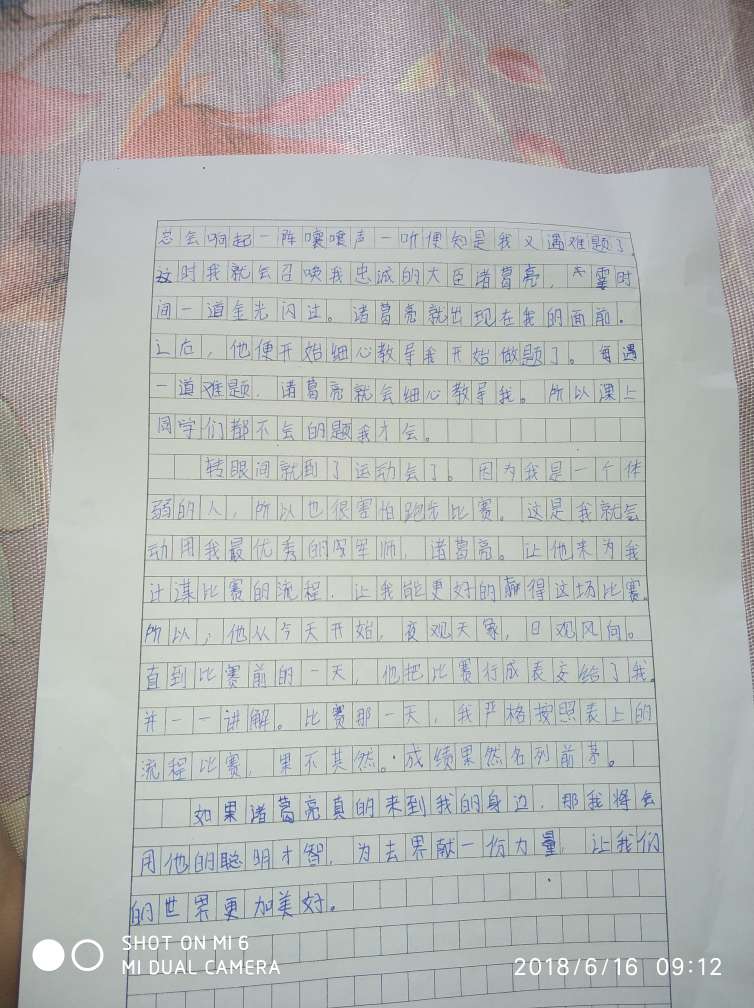 总会响起一阵嚷嚷声一听便知是我又遇难题了。
这时我就会召唤我忠诚的大臣诸葛亮，霎时
间一道金光闪过。诸葛亮就出现在我的面前。
之后，他便开始细心教导我开始做题了。每遇
一道难题，诸葛亮就会细心教导我。所以课上
同学们都不会的题我才会。
转眼间就到了运动会了。因为我是一个体
弱的人，所以也很害怕跑步比赛。这是我就会
动用我最优秀的军师，诸葛亮。让他来为我
计谋比赛的流程，让我能更好的赢得这场比赛。
所以，他从今天开始，夜观天象，日观风向。
直到比赛前的一天，他把比赛行成表交给了我。
并一一讲解。比赛那一天，我严格按照表上的
流程比赛，果不其然。成绩果然名列前茅。
如果诸葛亮真的来到我的身边，那我将会
用他的聪明才智，为去界献一份力量，让我们
的世界更加美好。
SHOT ON MI 6
MI DUAL CAMERA
2018/6/16 09:12